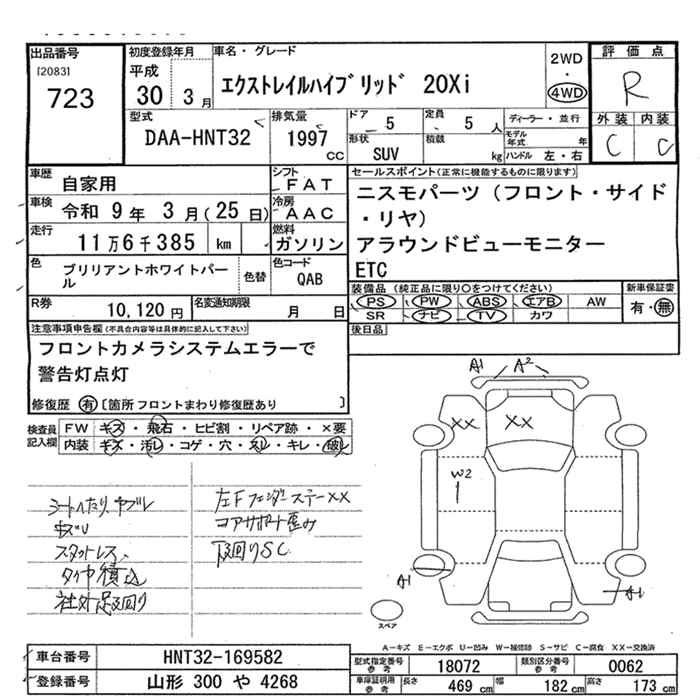 出品番号
[2083]
723
初度登録年月
平成
30 3月
車名・グレード
エクストレイルハイブリッド 20Xi
2WD
・
4WD
評価点
R
外装 内装
C C
型式
DAA-HNT32
排気量
1997 CC
ドア 5
定員 5 人
形状 SUV
積載 kg
ディーラー・並行
モデル年式 年
ハンドル 左・右
車歴 自家用
シフト FAT
車検 令和 9年 3月(25日)
冷房 AAC
走行 11万6千385 km
燃料 ガソリン
色 ブリリアントホワイトパール
色替
色コード QAB
R券 10,120円
名変通知期限 月 日
セールスポイント(正常に機能するものに限ります)
ニスモパーツ(フロント・サイド
・リヤ)
アラウンドビューモニター
ETC
装備品(純正品に限り〇をつけてください)
PS PW ABS エアB AW
SR ナビ TV カワ
新車保証書
有・無
後日品
注意事項申告欄(不具合内容等は具体的に記入して下さい)
フロントカメラシステムエラーで
警告灯点灯
修復歴 有 [箇所 フロントまわり修復歴あり ]
検査員記入欄
FW キズ・飛石・ヒビ割・リペア跡・×要
内装 キズ・汚レ・コゲ・穴・スレ・キレ・破レ
シートへたり、ヤブレ
キズU
スタットレス
タイヤ積込
社外足回り
左Fフェンダーステー××
コアサポート歪み
下回りSC
A1 A2
×× ××
W2
A1
A1
スペア
A-キズ E-エクボ U-凹み W-補修跡 S-サビ C-腐食 ××-交換済
車台番号 HNT32-169582
登録番号 山形 300 や 4268
型式指定番号 参考 18072
類別区分番号 参考 0062
車庫証明用 参考 長さ 469 cm 幅 182 cm 高さ 173 cm